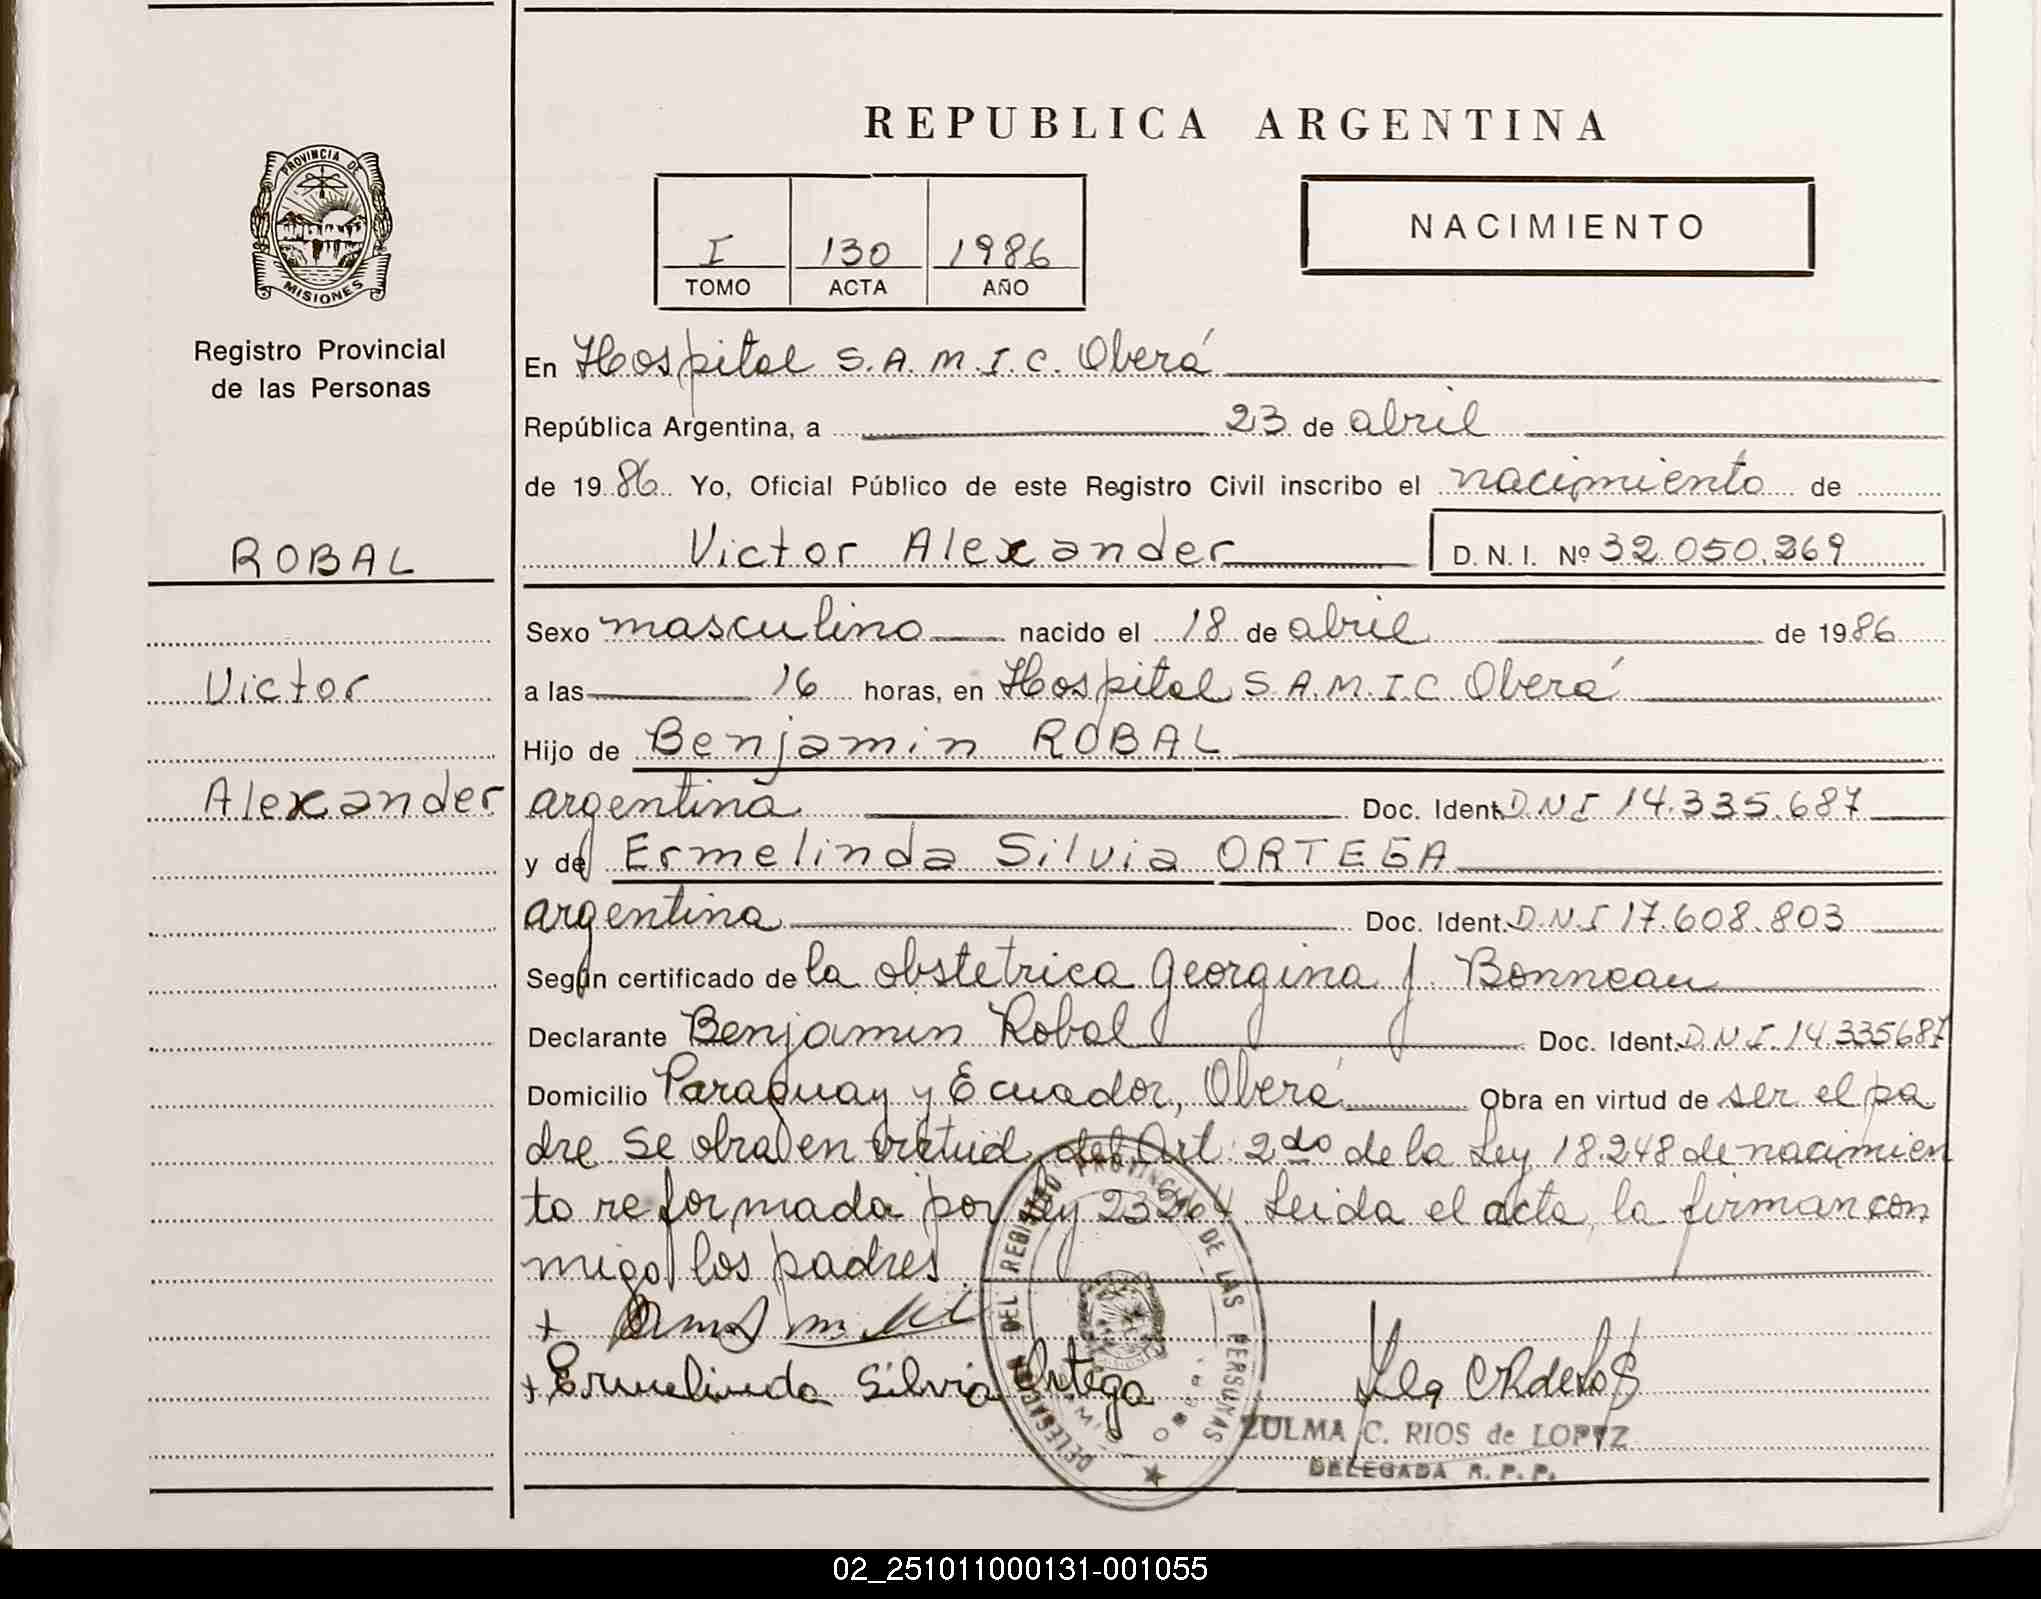 REPUBLICA ARGENTINA
PROVINCIA DE
MISIONES
Registro Provincial
de las Personas
ROBAL
Victor
Alexander
I 130 1986
TOMO ACTA AÑO
NACIMIENTO
En Hospital S.A.M.I.C. Oberá
República Argentina, a 23 de abril
de 1986 Yo, Oficial Público de este Registro Civil inscribo el nacimiento de
Victor Alexander D. N. I. Nº 32.050.269
Sexo masculino nacido el 18 de abril de 1986
a las 16 horas, en Hospital S.A.M.I.C Oberá
Hijo de Benjamin ROBAL
argentina Doc. Ident. D.N.I 14.335.687
y de Ermelinda Silvia ORTEGA
argentina Doc. Ident. D.N.I 17.608.803
Según certificado de la obstetrica Georgina J. Bonneau
Declarante Benjamin Robal Doc. Ident. D.N.I. 14.335687
Domicilio Paraguay y Ecuador, Oberá Obra en virtud de ser el pa
dre se obra en virtud del Art. 2do de la Ley 18.248 de nacimien
to reformada por Ley 23264 Leida el acta, la firman con
migo los padres
+
+ Ermelinda Silvia Ortega
DELEGACION DEL REGISTRO PROVINCIAL DE LAS PERSONAS
ZULMA C. RIOS de LOPEZ
DELEGADA R. P. P.
02_251011000131-001055